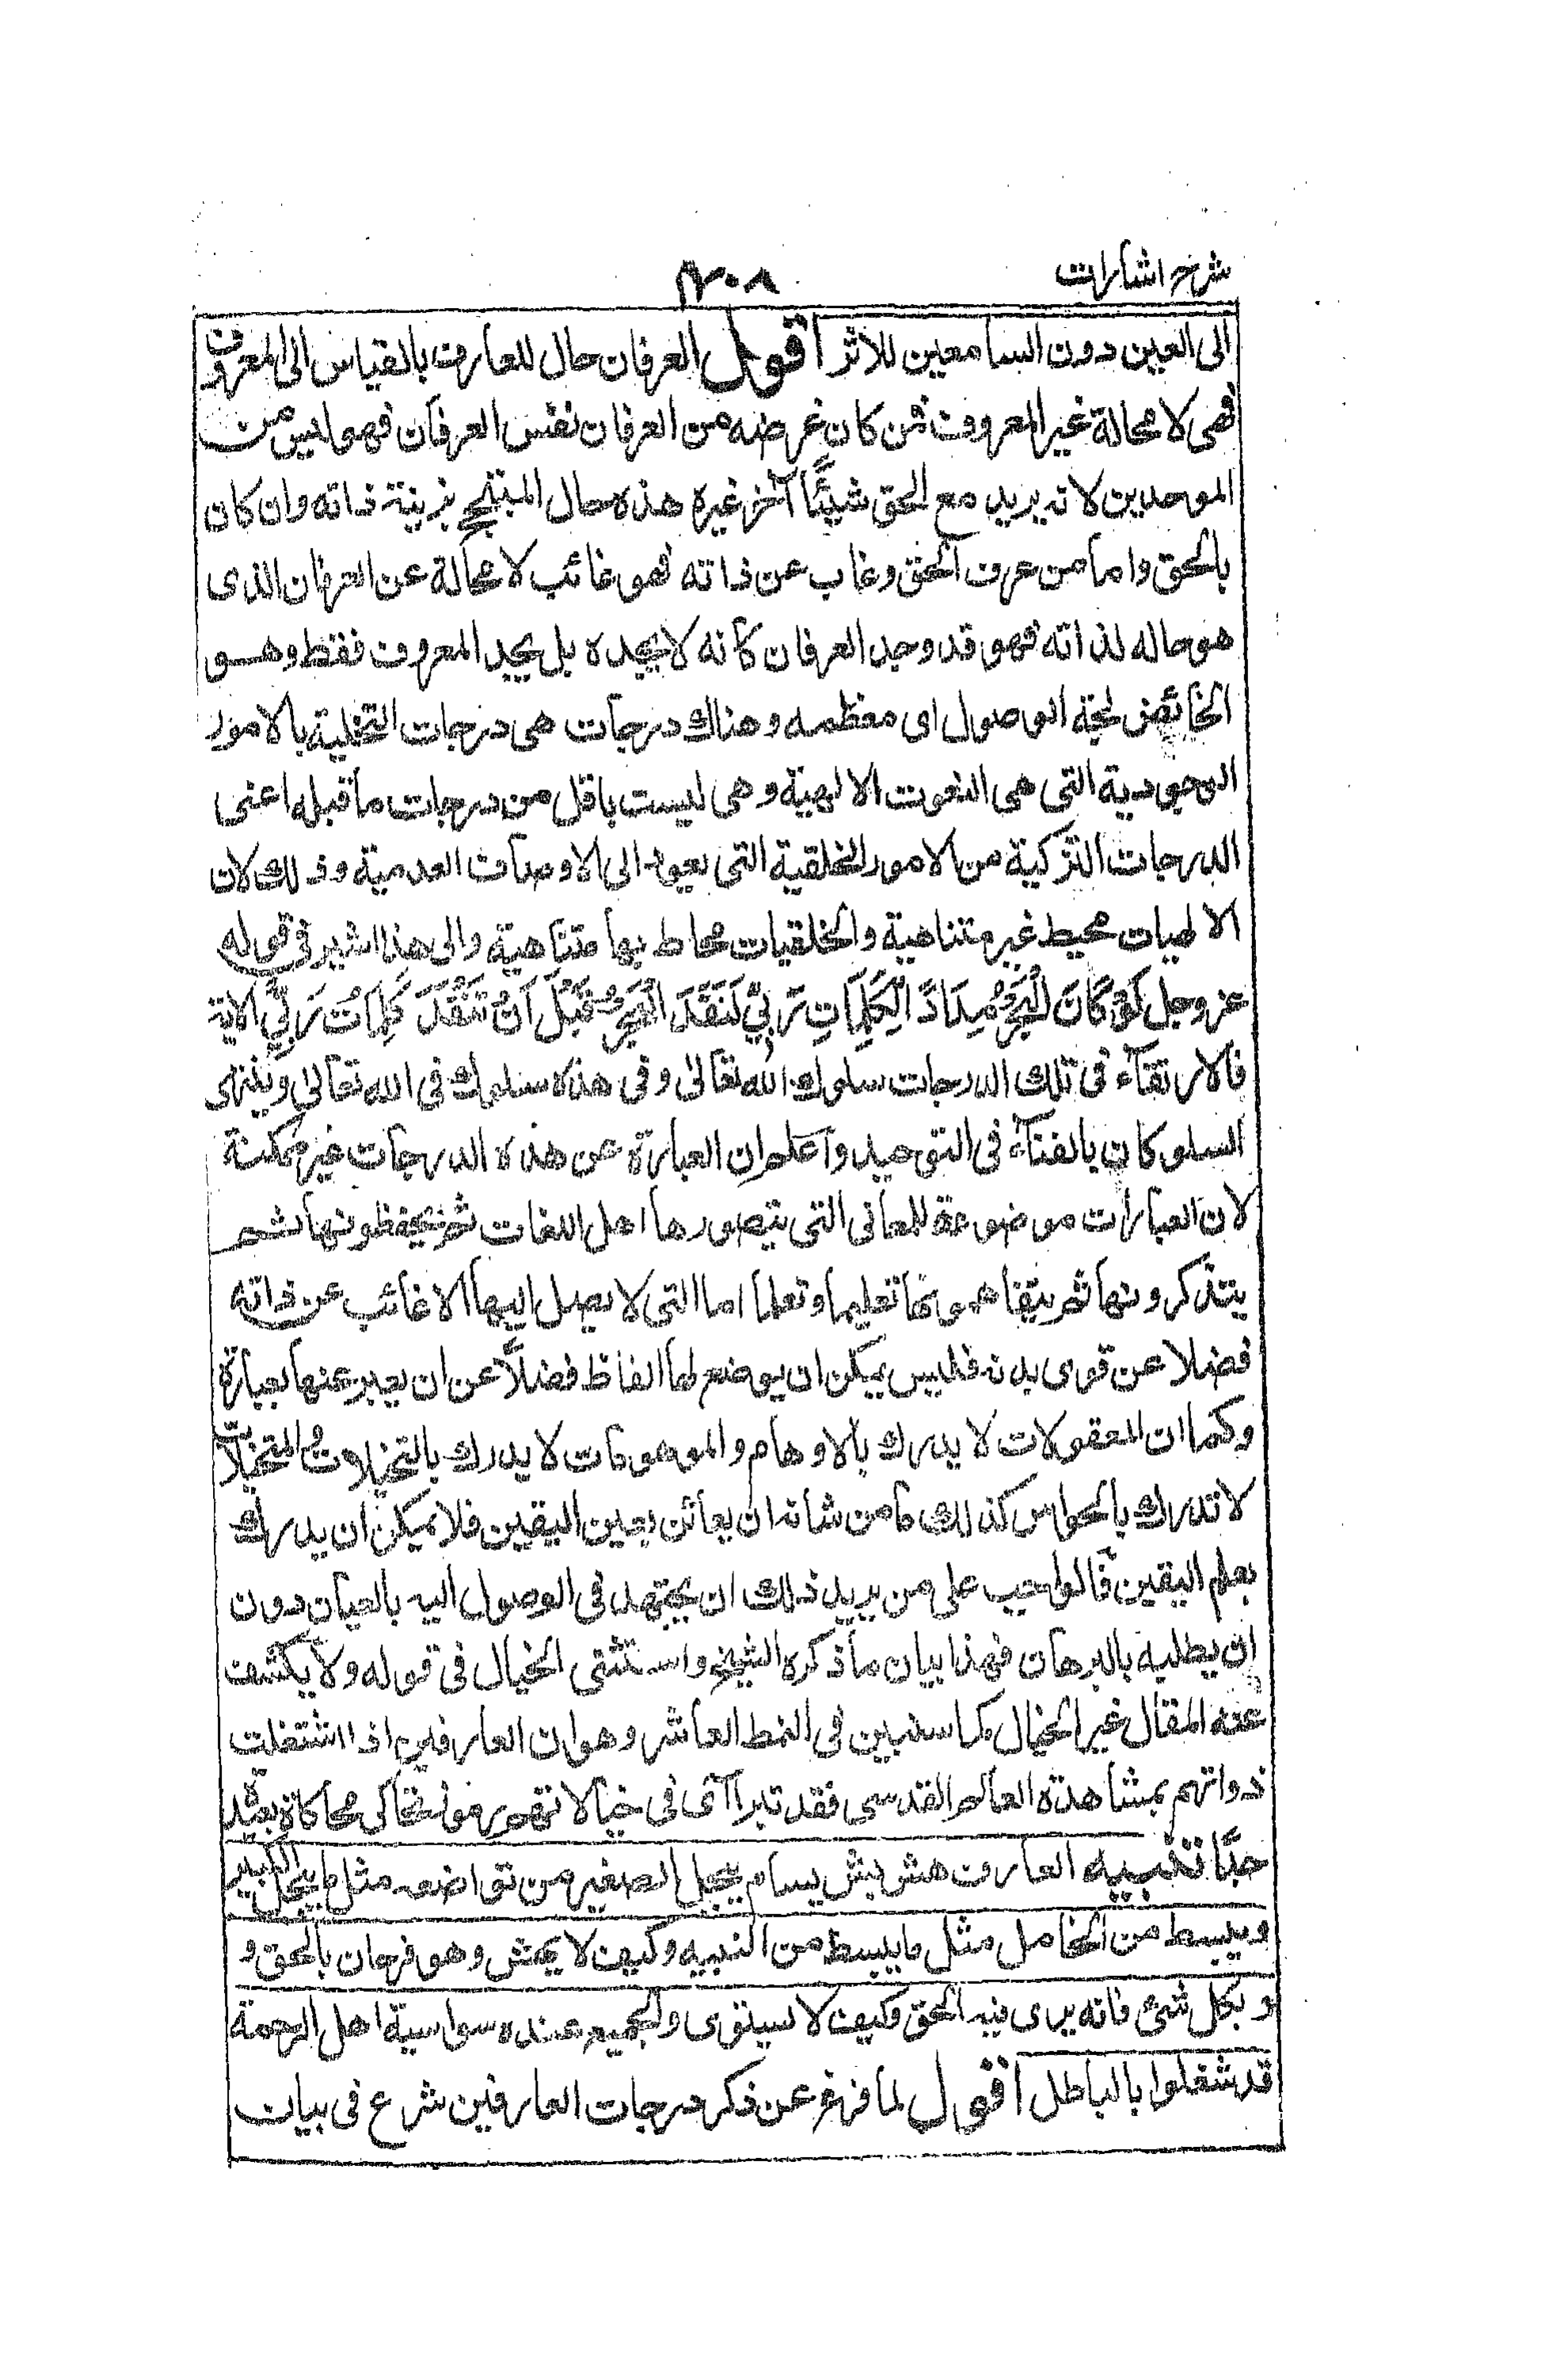 شرح اشارات
٣٠٨
الى العين دون السامعين للاثر اقول العرفان حال للعارف بالقياس الى المعروف
فهى لا محالة غير المعروف فمن كان غرضه من العرفان نفس العرفان فهو ليس من
الموحدين لانه يريد مع الحق شيئًا آخر غيره هذه حال المبتهج بزينة ذاته وان كان
بالحق واما من عرف الحق وغاب عن ذاته فهو غائب لا محالة عن العرفان الذى
هو حاله لذاته فهو قد وجد العرفان كانه لا يجده بل يجد المعروف فقط وهو
الخائض لجة الوصول اى معظمه وهناك درجات هى درجات التخلية بالامور
الوجودية التى هى النعوت الالهية وهى ليست باقل من درجات ما قبله اعنى
الدرجات التزكية من الامور الخلقية التى يعود الى الاوصاف العدمية وذلك لان
الالهيات محيط غير متناهية والخلقيات محاط بها متناهية والى هذا اشير فى قوله
عز وجل لَوْ كَانَ الْبَحْرُ مِدَادًا لِكَلِمَاتِ رَبِّيْ لَنَفِدَ الْبَحْرُ قَبْلَ اَنْ تَنْفَدَ كَلِمَاتُ رَبِّيْ الاية
فالارتقاء فى تلك الدرجات سلوك الله تعالى وفى هذه سلوك فى الله تعالى وينتهى
السلوكان بالفناء فى التوحيد واعلم ان العبارة عن هذه الدرجات غير ممكنة
لان العبارات موضوعة للمعانى التى يتصورها اهل اللغات ثم يحفظونها ثم
يتذكرونها ثم يتفاهمونها تعليما وتعلما اما التى لا يصل اليها الا غائب عن ذاته
فضلا عن قوى بدنه فليس يمكن ان يوضع لها الفاظ فضلًا عن ان يعبر عنها بعبارة
وكما ان المعقولات لا يدرك بالاوهام والموهومات لا يدرك بالتخيلات والمتخيلات
لا تدرك بالحواس كذلك ما من شانه ان يعائن بعين اليقين فلا يمكن ان يدرك
بعلم اليقين فالواجب على من يريد ذلك ان يجتهد فى الوصول اليه بالعيان دون
ان يطلبه بالبرهان فهذا بيان ما ذكره الشيخ واستثنى الخيال فى قوله ولا يكشف
عنه المقال غير الخيال كما سنبين فى النمط العاشر وهو ان العارفين اذا اشتغلت
ذواتهم بمشاهدة العالم القدسى فقد تبراآى فى خيالاتهم امور تحاكى محاكاة بعيدة
جدًا تنبيه العارف هش بش بسام يبجل الصغير من تواضعه مثل ما يبجل الكبير
وينبسط من الخامل مثل ما ينبسط من النبيه وكيف لا يهش وهو فرحان بالحق و
و بكل شئ فانه يرى فيه الحق وكيف لا يستوى والجميع عنده سواسية اهل الرحمة
قد شغلوا بالباطل اقول لما فرغ عن ذكر درجات العارفين شرع فى بيان